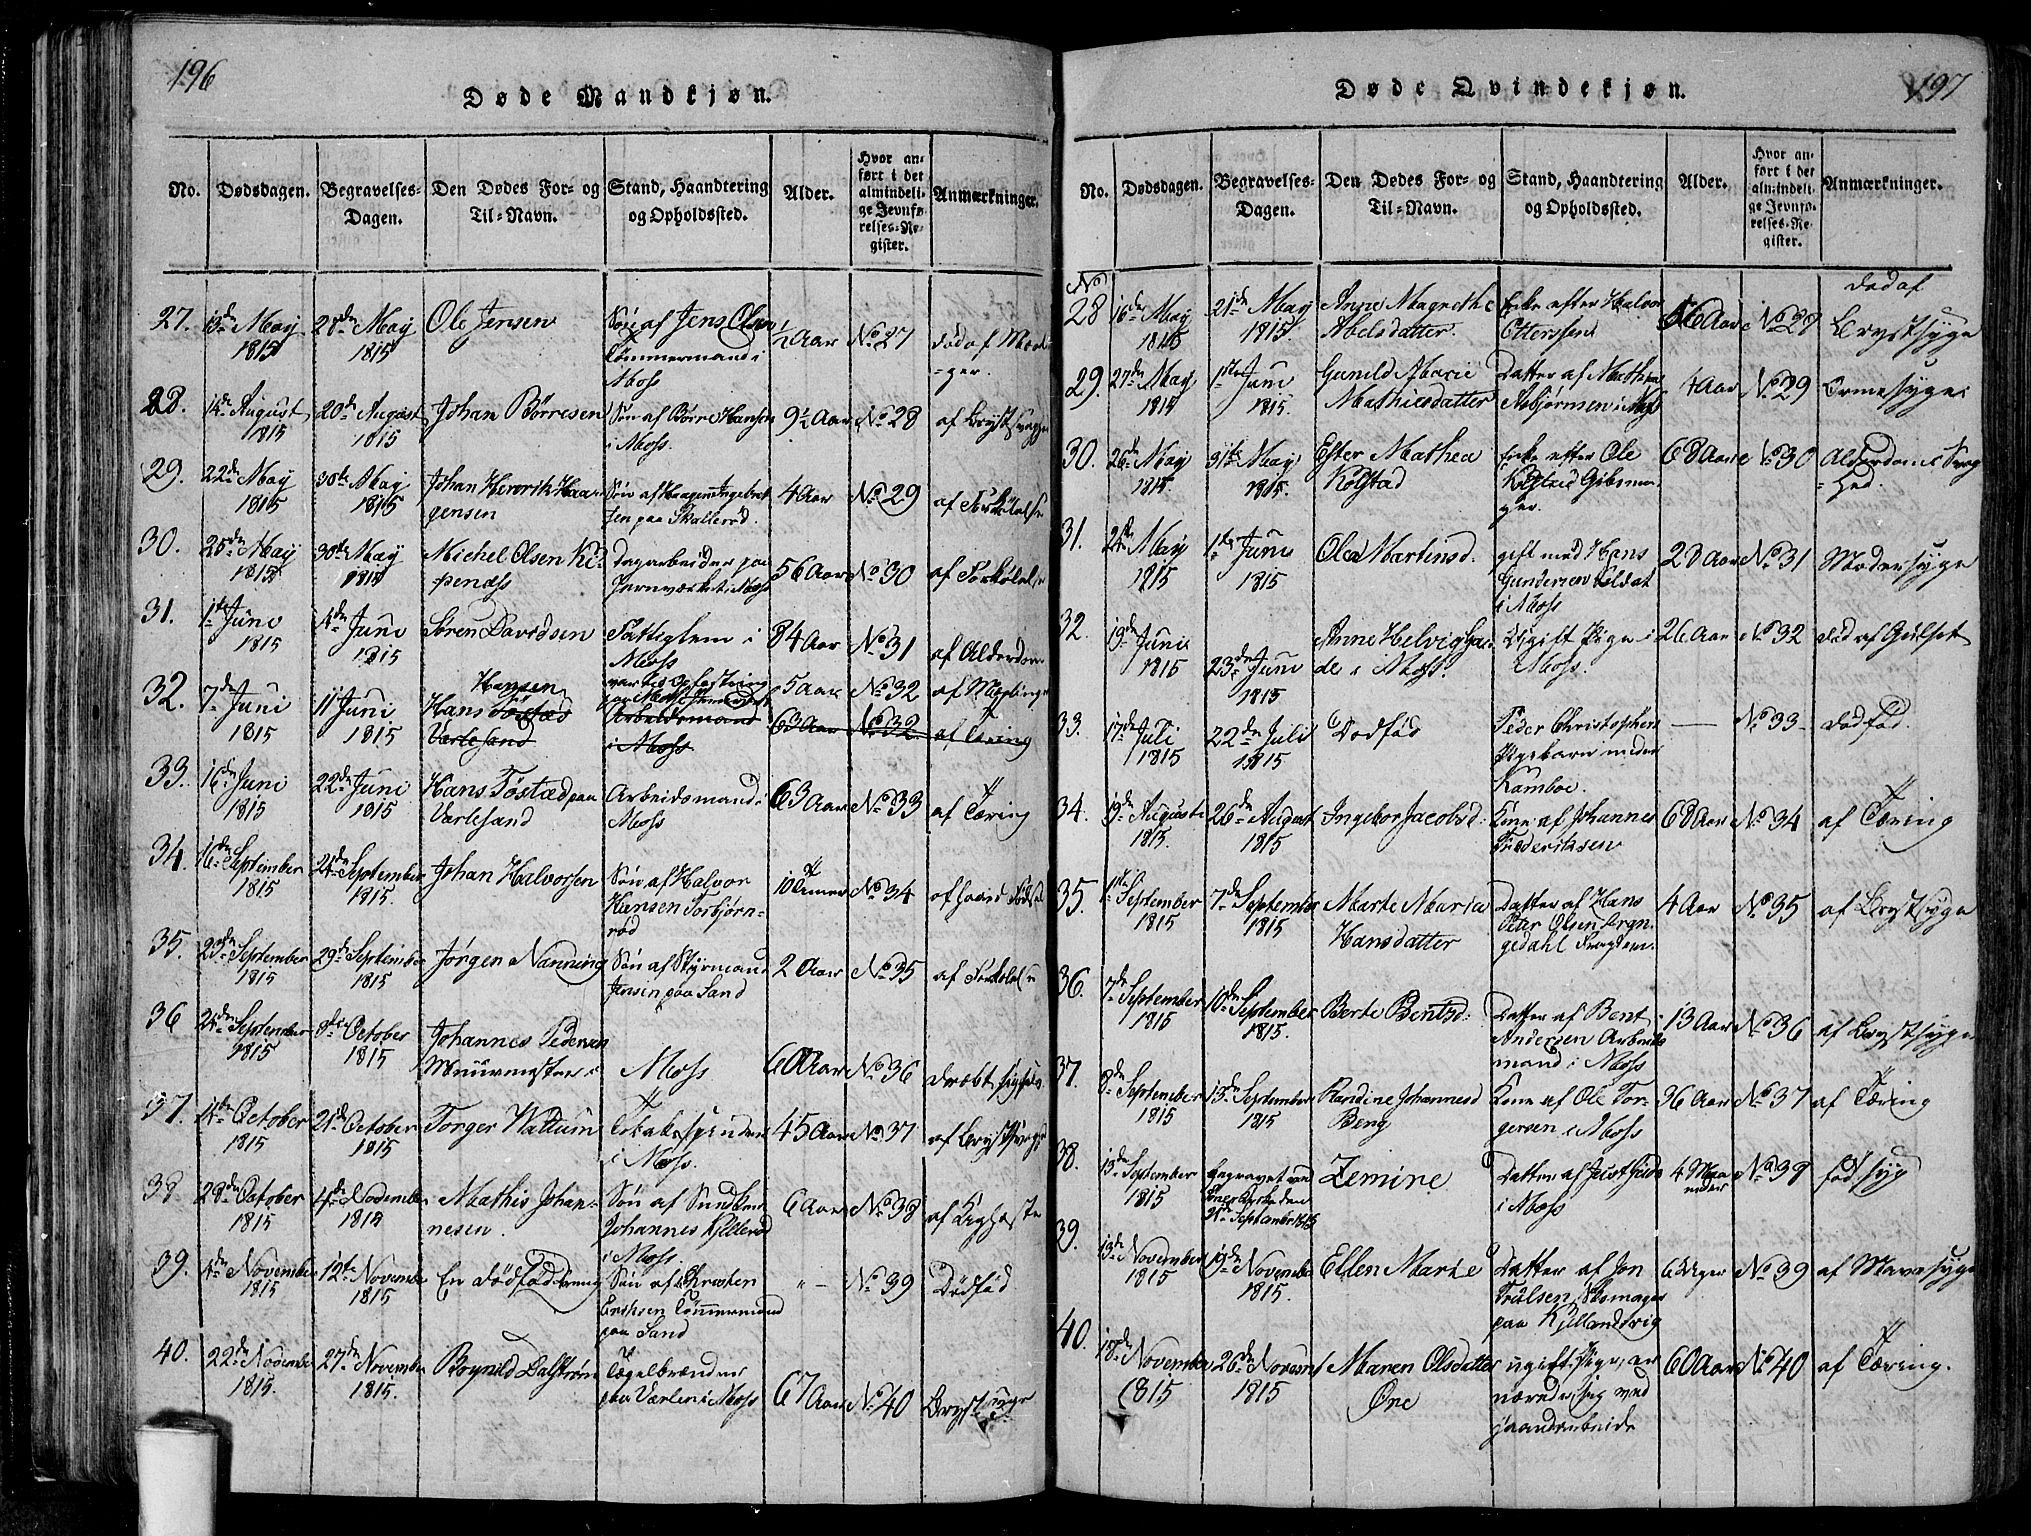 196
Døde Mandkjøn.
No. Dødsdagen. Begravelses-Dagen. Den Dødes For- og Til-Navn. Stand, Haandtering og Opholdssted. Alder. Hvor anført i det almindelige Jevnførelses-Register. Anmærkninger.
27. 13de May 1815 28de May 1815 Ole Jensen Søn af Jens Olsen Tømmermand i Moss ½ Aar No 27 død af
28. 14de August 1815 20de August 1815 Johan Børresen Søn af Børre Hansen i Moss. 9½ Aar No 28 af Brystsvaghed
29. 22de May 1815 30te May 1815 Johan Henrik Haagensen Søn af Haagen Ingebretsen paa Skallerød. 4 Aar No 29 af Forkølelse
30. 25de May 1815 30te May 1815 Michel Olsen Dagarbeider paa Jernverket i Moss 56 Aar No 30 af Forkølelse
31. 1ste Juni 1815 4de Juni 1815 Søren Davidsen Fattiglem i Moss 84 Aar No 31 af Alderdom
32. 7de Juni 1815 11 Juni 1815 Hansen Hans Varlesand Arbeidsmand i Moss 5 Aar No 32 af Mæslinger
63 Aar No 32. af Tæring
33. 16de Juni 1815 22de Juni 1815 Hans Tøstad paa Varlesand Arbeidsmand i Moss 63 Aar No 33 af Tæring
34. 16de September 1815 24de September 1815. Johan Halvorsen Søn af Halvor Hansen Torbjørnrød No 34 af haard Fødsel
35. 25de September 1815 29de September 1815 Jørgen Nanning Søn af Styrmand Jensen paa Sand 2 Aar No 35 af Forkølelse
36 24de September 1815 8de October 1815 Johannes Pedersen Muurmester i Moss 60 Aar No 36 dræbt sig selv
37. 14de October 1815 21de October 1815 Torger Wattum Tobakspinder i Moss. 45 Aar No 37 af Brystsyge
38 28de October 1815 4de November 1815 Mathis Johannesen. Søn af Johannes Kjellerød i Moss. 6 Aar No 38 af Kighoste
39. 4de November 1815 12te November 1815. En dødfød Dreng Søn af Christen Erichsen Tømmermand paa Sand " - No 39 Dødfød
40. 22de November 1815. 27de November 1815. Brynild Dalstrøm Tegelbrænder paa Værlen i Moss 67 Aar No 40 Brystsyge
197
Døde Qvindekjøn.
No. Dødsdagen. Begravelses-Dagen. Den Dødes For- og Til-Navn. Stand, Haandtering og Opholdssted. Alder. Hvor anført i det almindelige Jevnførelses-Register. Anmærkninger.
No 28 16de May 1815 21de May 1815. Anne Magrethe Abelsdatter. Enke efter Halvor Ottersen 56 Aar No 28 død af Brystsyge
29. 27de May 1815 1ste Juni 1815. Gunild Marie Mathisdatter Datter af Mathis Asbjørnsen i Moss 4 Aar No 29 Ormesyge
30. 26de May 1815 31te May 1815. Ester Mathea Kolstad Enke efter Ole Kolstad Gibsmager. 68 Aar No 30 Alderdoms Svaghed.
31. 24de May 1815 1ste Juni 1815 Olea Martinsd. gift med Hans Gundersen Soldat i Moss 28 Aar No 31 Modersyge
32. 19de Juni 1815 23de Juni 1815 Anne Helvig Gude i Moss. Ugift Pige i Moss. 26 Aar No 32 død af Gulsot
33. 17de Juli 1815 22de Juli 1815 Dødfød Peder Christophers Pigebarn neder Kamboe. — No 33 - dødfød.
34. 19de August 1815. 26de August 1815 Ingebor Jacobsd: Kone af Johannes Frederiksen 68 Aar No 34 af Tæring
35. 1ste September 1815 7de September 1815 Marte Maria Hansdatter Datter af Hans Peter Olsen 4 Aar No 35 af Brystsyge
36. 7de September 1815 10de September 1815. Berte Bentsd: Datter af Bent Andersen Arbeidsmand i Moss 13 Aar No 36 af Brystsyge
37. 8de September 1815 13de September 1815 Randine Johannesd Berg Kone af Ole Torgersen i Moss 36 Aar No 37 af Tæring
38. 13de September 1815 begravet ved 21de September 1815 Zemine Datter af i Moss 4 Maaneder No 38 fød syg
39. 13de November 1815 19de November 1815. Ellen Marie Datter af Jon Truelsen Skomager paa Kjellandsvig 6 Uger No 39 af Mavesyge
40. 18de November 1815 26de November 1815 Maren Olsdatter Øne ugift Pige, ernærede sig ved Haandarbeide 60 Aar No 40 af Tæring.